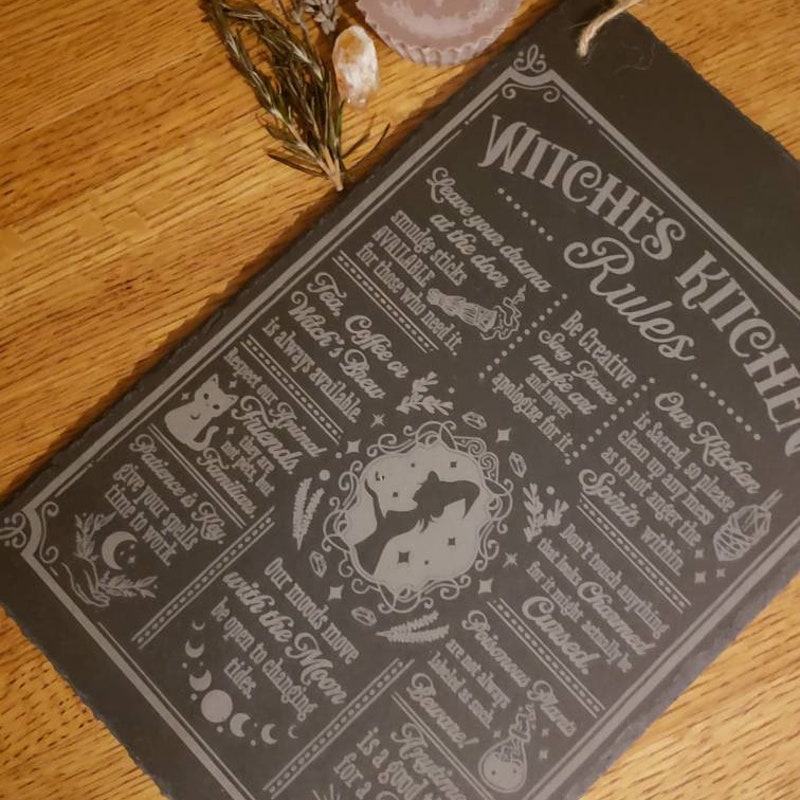 WITCHES KITCHEN
Rules
Leave your drama
at the door
smudge sticks
AVAILABLE
for those who need it.
Be Creative
Sing Dance
make art
and never
apologize for it.
Tea, Coffee or
Witch's Brew
is always available.
Our Kitchen
is Sacred, so please
clean up any mess
as to not anger the
Spirits within.
Respect our Animal
Friends,
they are
not pets, but
Familiars
Don't touch anything
that looks Charmed
for it might actually be
Cursed.
Patience is Key
give your spells
time to work.
Our moods move
with the Moon
be open to changing
tides.
Poisonous Plants
are not always
labeled as such.
Beware!
is a good
for a